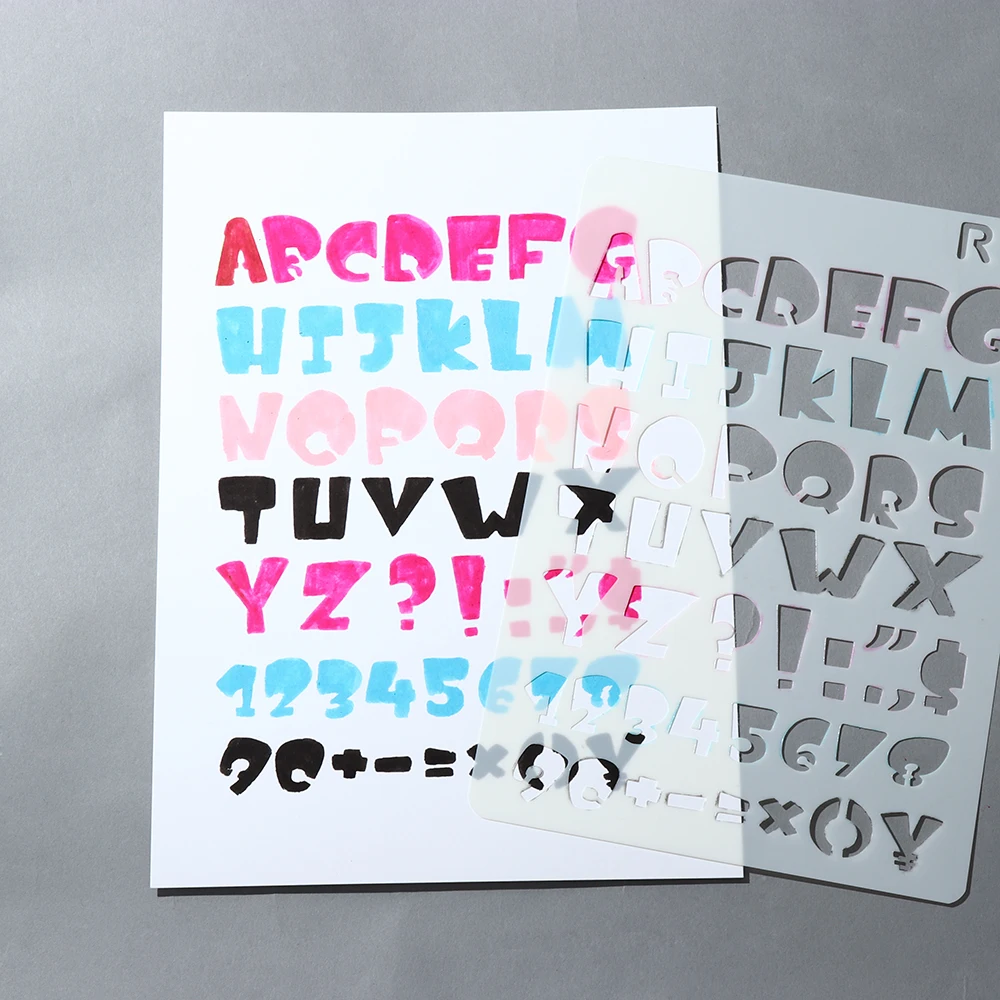 ABCDEFG
HIJKLM
NOPQRS
TUVWX
YZ?!:";,$
12345678
90+-=×()¥
R
ABCDEFG
HIJKLM
NOPQRS
TUVWX
YZ?!:";,$
12345678
90+-=×()¥